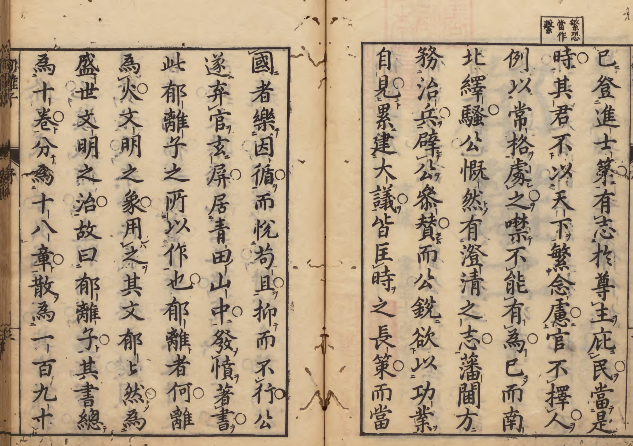 繁恐
當作
繫
已登進士第有志於尊主庇民當是
時其君不以天下繁念慮官不擇人
例以常格處之噤不能有爲已而南
北繹騷公慨然有澄清之志藩閫方
務治兵辟公參贊而公銳欲以功業
自見累建大議皆匡時之長策而當
國者樂因循而悅苟且抑而不行公
遂弃官玄屏居青田山中發憤著書
此郁離子之所以作也郁離者何離
爲火文明之象用之其文郁〻然爲
盛世文明之治故曰郁離子其書總
爲十卷分爲十八章散爲一百九十